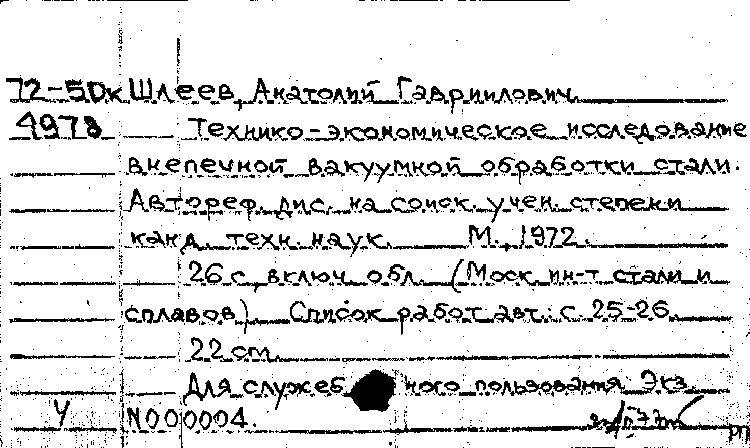 72-5Дк Шлеев, Анатолий Гавриилович.
4978 Технико-экономическое исследование
внепечной вакуумной обработки стали.
Автореф. дис. на соиск. учен. степени
канд. техн. наук. М., 1972.
26 с., включ. обл. (Моск. ин-т стали и
сплавов). Список работ авт.: с. 25-26.
22 см.
Для служебного пользования. Экз.
У N000004.